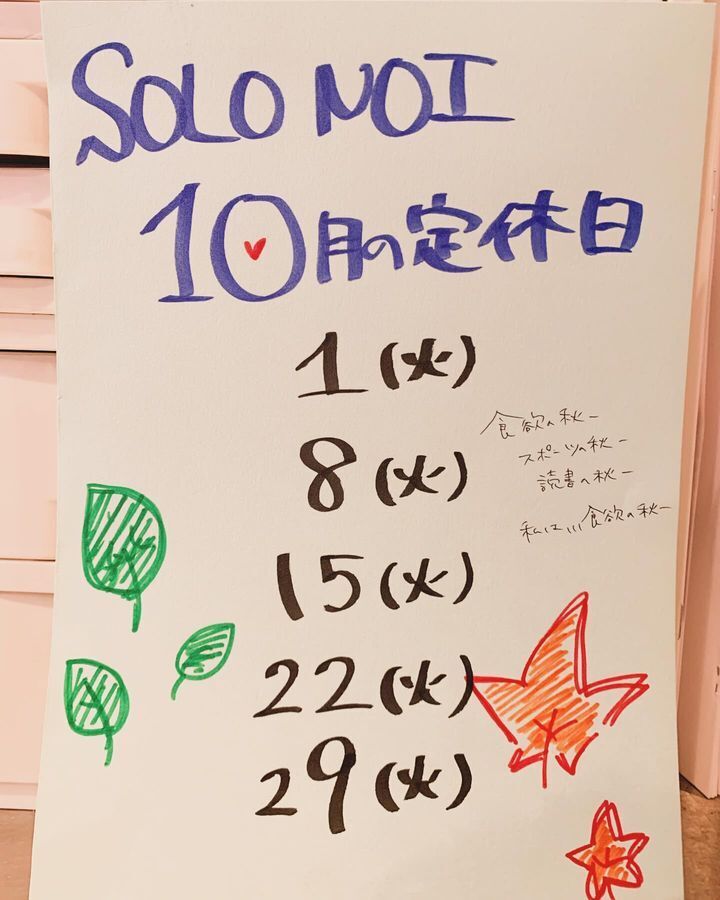 SOLO NOI
10月の定休日
1(火)
8(火)
15(火)
22(火)
29(火)
食欲の秋ー
スポーツの秋ー
読書の秋ー
私は...食欲の秋ー